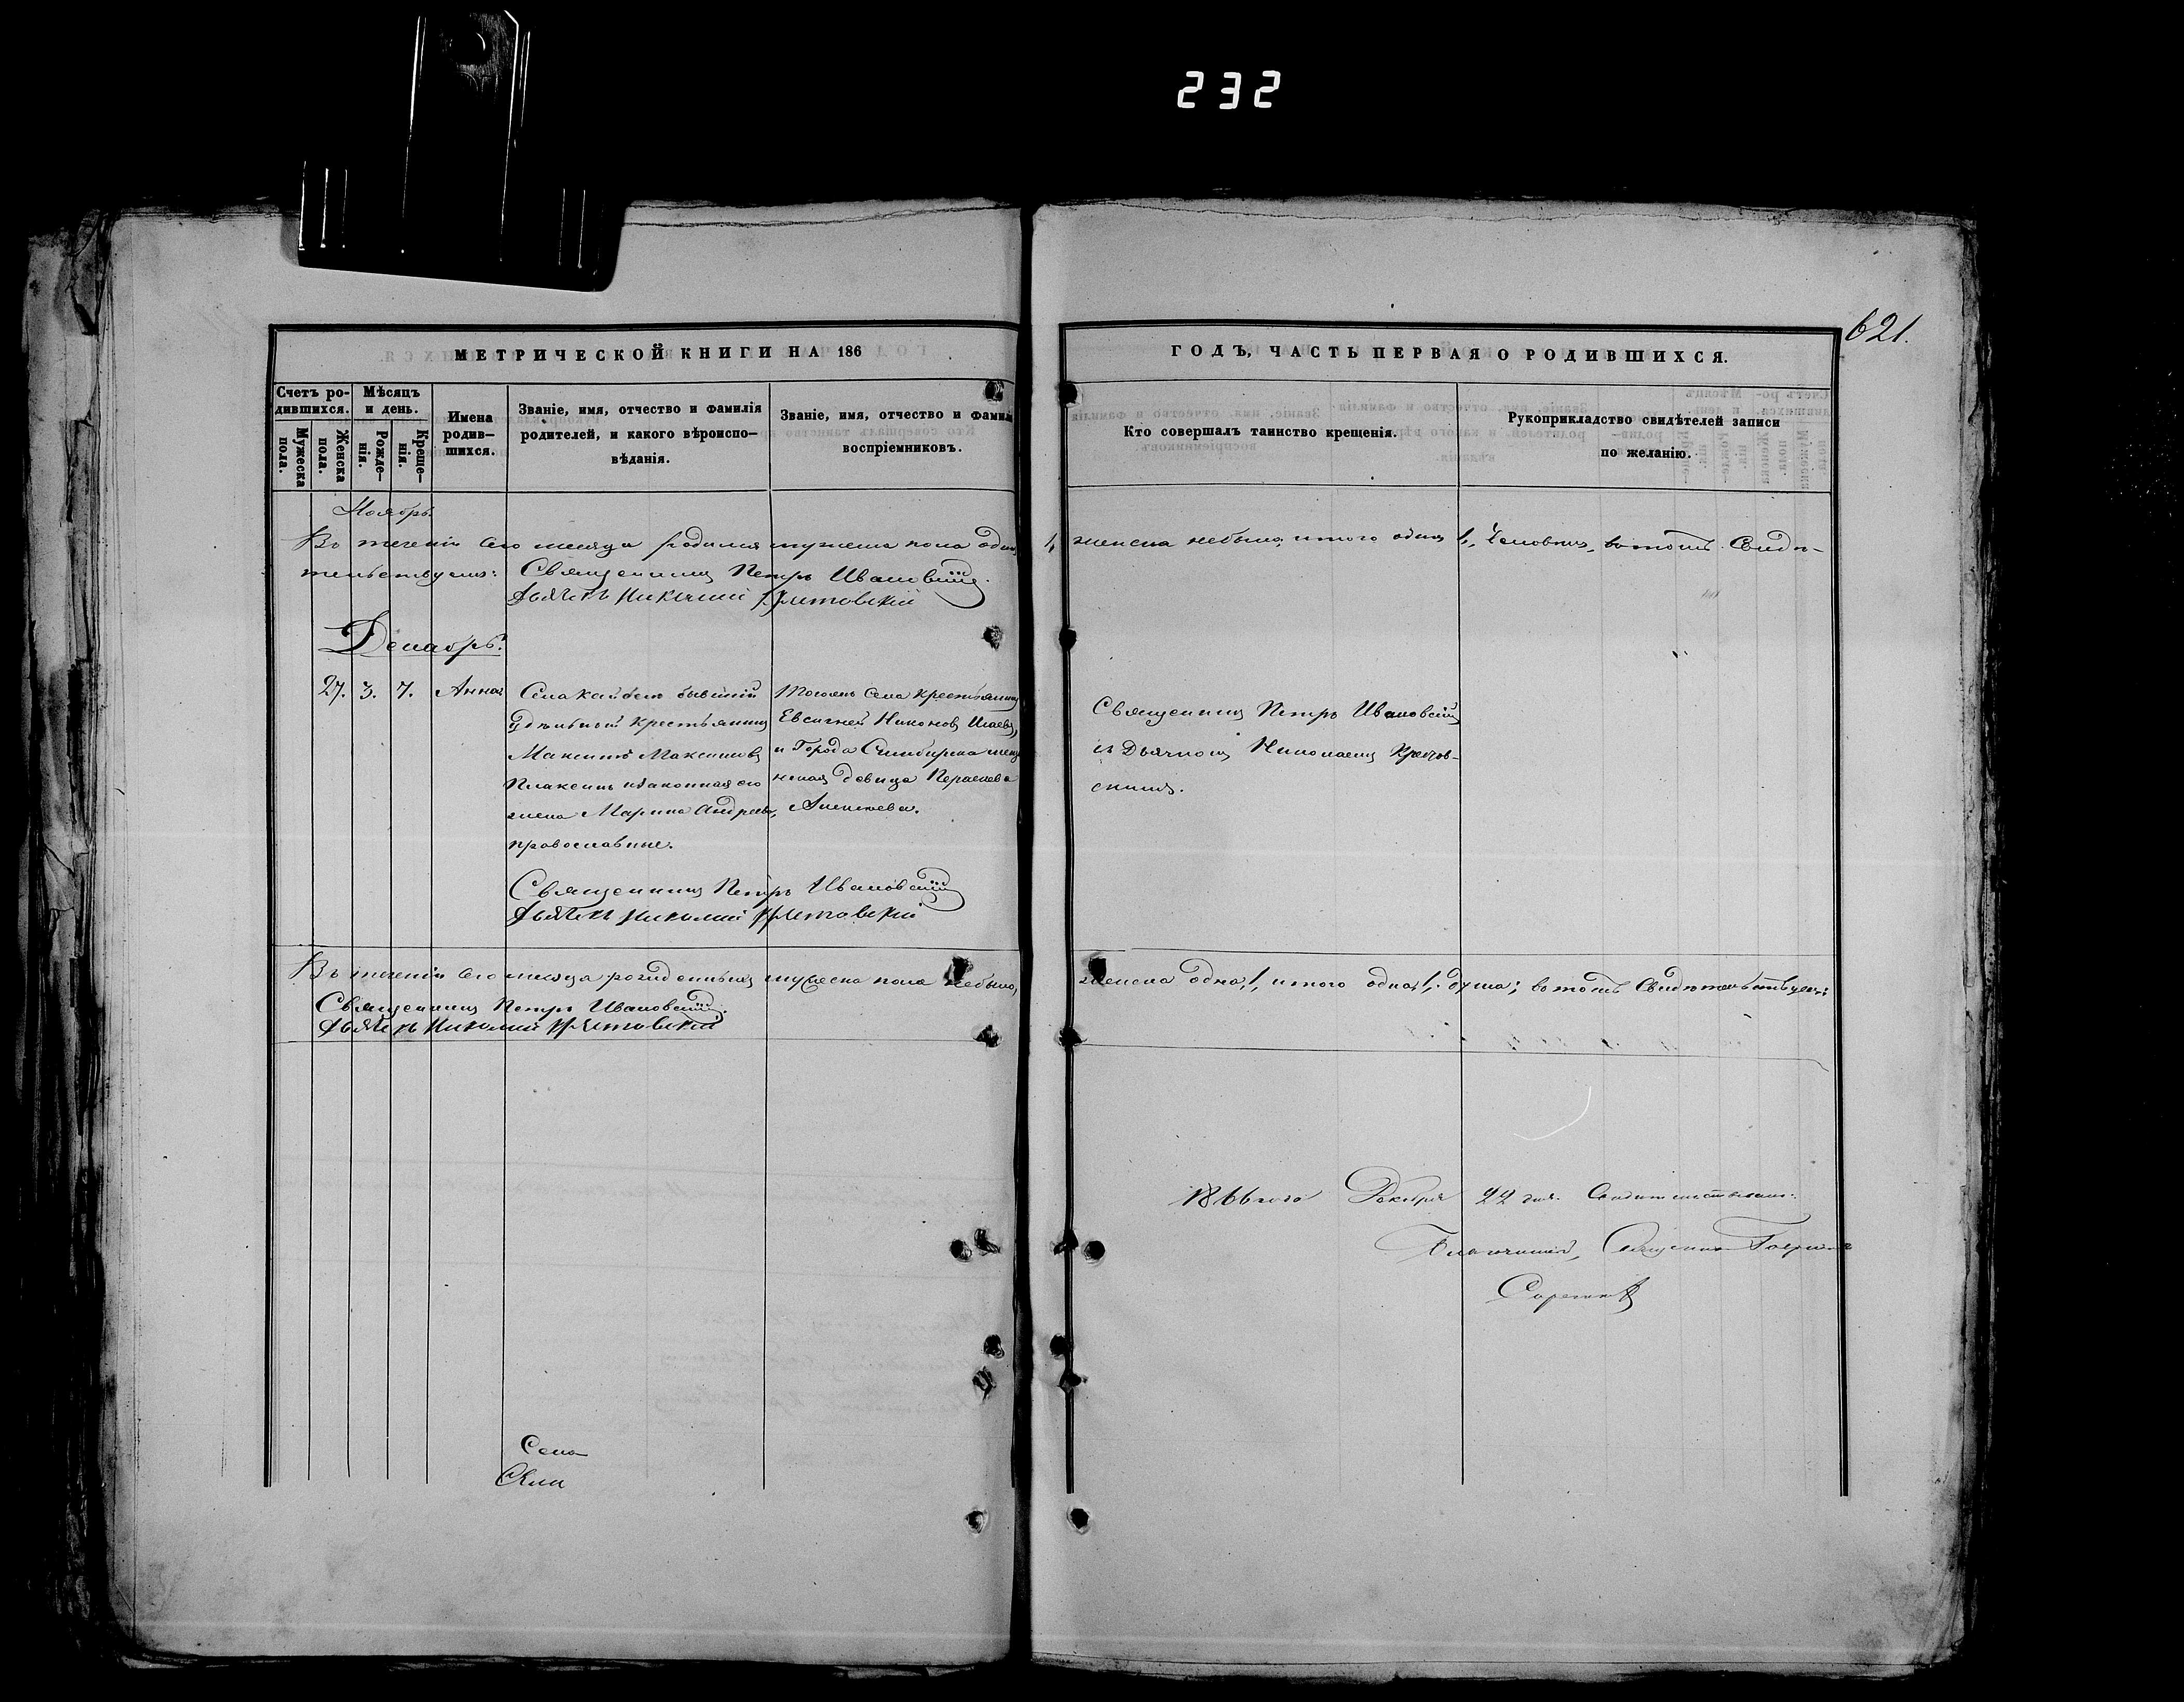 232
621.
МЕТРИЧЕСКОЙ КНИГИ НА 186
ГОДЪ, ЧАСТЬ ПЕРВАЯ О РОДИВШИХСЯ.
Счетъ ро-
дившихся.
Мужеска
пола.
Женска
пола.
Мѣсяцъ
и день.
Рожде-
нія.
Креще-
нія.
Имена
родив-
шихся.
Званіе, имя, отчество и фамилія
родителей, и какого вѣроиспо-
вѣданія.
Званіе, имя, отчество и фамилі
воспріемниковъ.
Кто совершалъ таинство крещенія.
Рукоприкладство свидѣтелей записи
по желанію.
Ноябрь.
Въ теченіи сего месяца родился мужеска пола одинъ 1, женска небыло, итого одинъ 1, человѣкъ, въ томъ Свидѣ-
тельствуемъ: Священникъ Петръ Ивановскій.
Дьячекъ Николай
Декабрь.
27. 3. 7. Анна
Села бывшій
удѣльный крестьянинъ
Максимъ Максимовъ
Плаксинъ изаконная его
жена Марина Андреева,
православные.
Тогожъ Села крестьянинъ
Евсигней Никоновъ Исаевъ,
и Города Симбирска
девица
Священникъ Петръ Ивановскій
съ Дьячкомъ Николаемъ
скимъ.
Священникъ Петръ Ивановскій
Дьячекъ Николай
Въ теченіи сего месяца рожденныхъ мужеска пола небыло, женска одна 1, итого одна 1, душа; въ томъ Свидѣтельствуемъ:
Священникъ Петръ Ивановскій.
Дьячекъ Николай
1866 года Декабря 22 дня.
Благочинный, Священникъ
Села